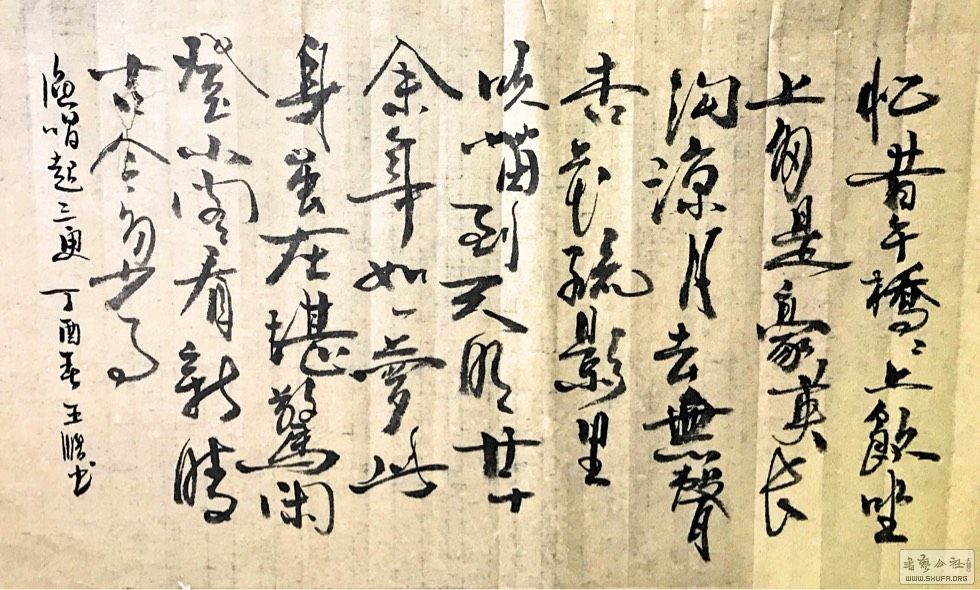 忆昔午橋々上飲坐
上多是豪英长
沟凉月去無聲
杏花疏影里
吹笛到天明廿十
余年如一夢此
身虽在堪驚闲
登小阁看新晴
古今多少事
渔唱起三更 丁酉春 王书
書藝公社
WWW.SHUFA.ORG